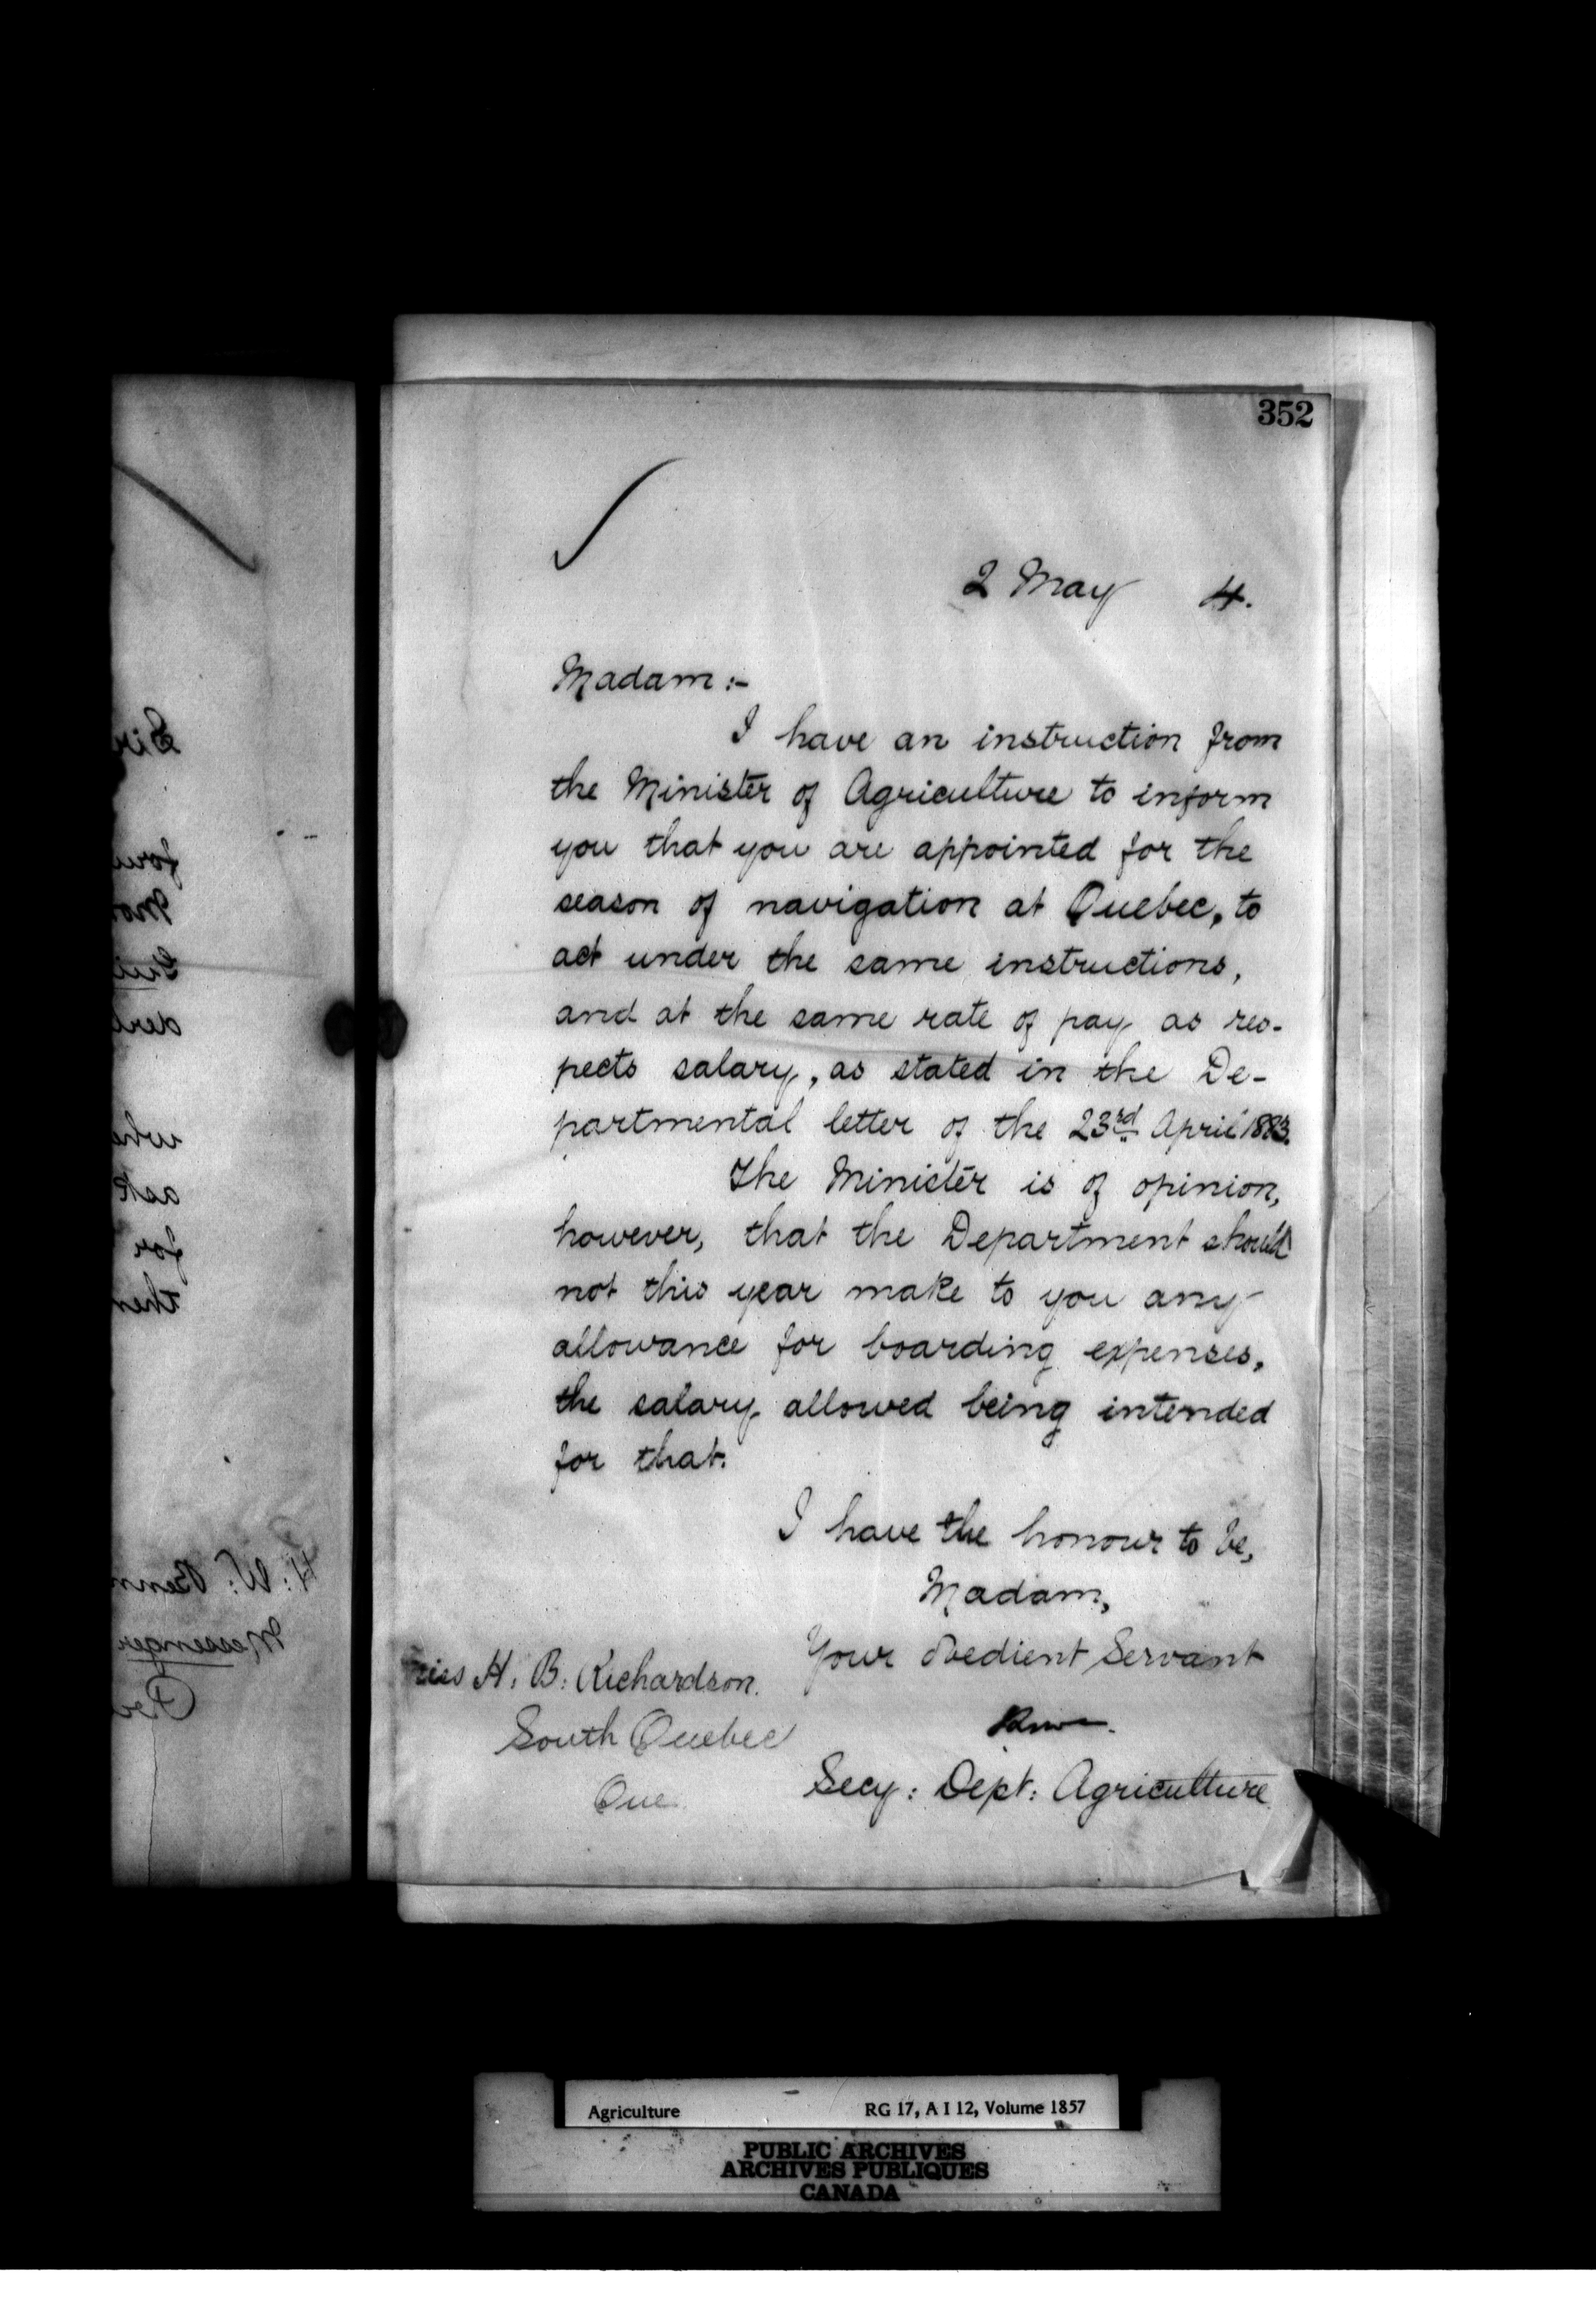 352
2 May 4.
Madam :-
I have an instruction from
the Minister of Agriculture to inform
you that you are appointed for the
season of navigation at Quebec, to
act under the same instructions,
and at the same rate of pay as res-
pects salary, as stated in the De-
partmental letter of the 23rd April 1883.
The Minister is of opinion,
however, that the Department should
not this year make to you any
allowance for boarding expenses,
the salary allowed being intended
for that.
I have the honour to be,
Madam,
Your obedient Servant
H. B. Richardson.
South Quebec
Que.
Secy: Dept: Agriculture
Agriculture RG 17, A I 12, Volume 1857
PUBLIC ARCHIVES
ARCHIVES PUBLIQUES
CANADA